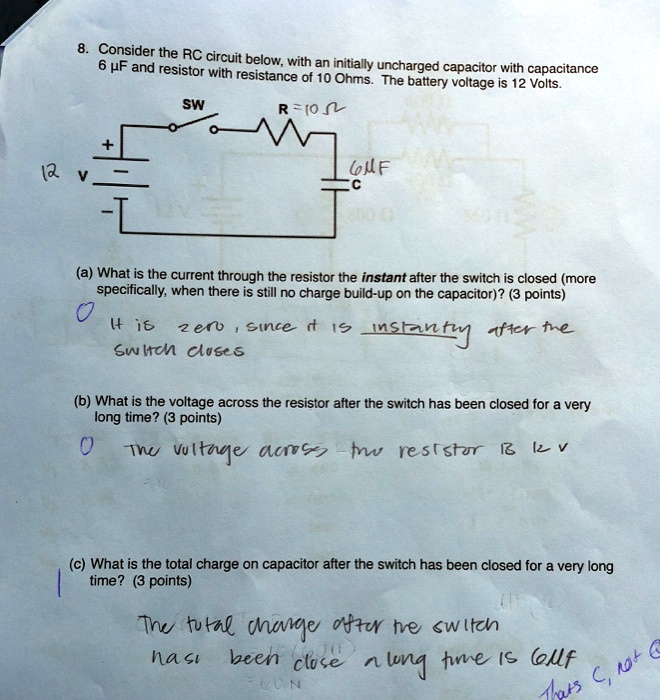 8. Consider the RC circuit below, with an initially uncharged capacitor with capacitance
6 µF and resistor with resistance of 10 Ohms. The battery voltage is 12 Volts.
SW
R = 10 Ω
+
12 V
-
6µF
C
(a) What is the current through the resistor the instant after the switch is closed (more
specifically, when there is still no charge build-up on the capacitor)? (3 points)
0
It is zero, since it is instantly after the
switch closes
(b) What is the voltage across the resistor after the switch has been closed for a very
long time? (3 points)
0
The voltage across the resistor is 12 V
(c) What is the total charge on capacitor after the switch has been closed for a very long
time? (3 points)
1
The total charge after the switch
has been close a long time is 6µf
Thats C, not Q